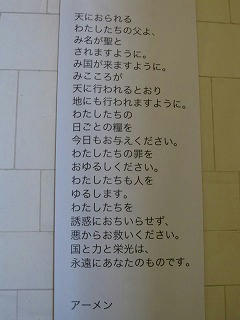 天におられる
わたしたちの父よ、
み名が聖と
されますように。
み国が来ますように。
みこころが
天に行われるとおり
地にも行われますように。
わたしたちの
日ごとの糧を
今日もお与えください。
わたしたちの罪を
おゆるしください。
わたしたちも人を
ゆるします。
わたしたちを
誘惑におちいらせず、
悪からお救いください。
国と力と栄光は、
永遠にあなたのものです。
アーメン